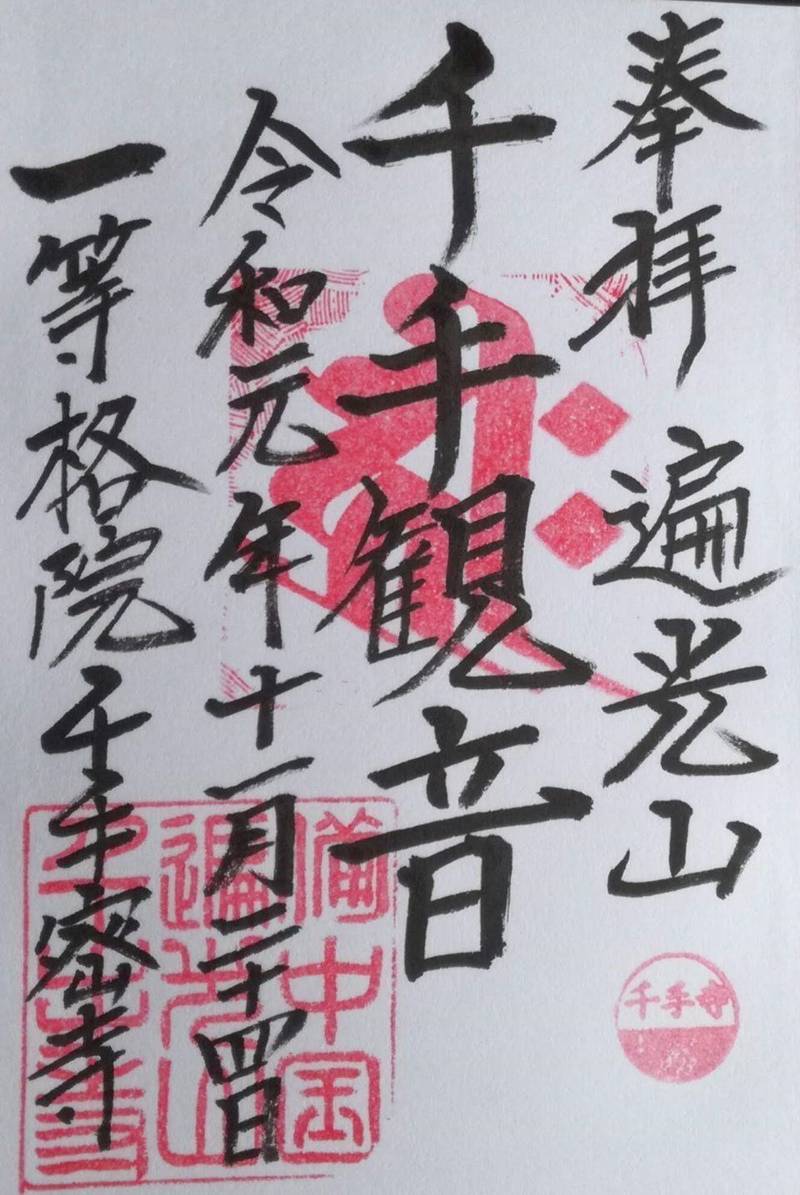 奉拝 遍光山
千手観音
令和元年十一月二十四日
一等格院 千手密寺
備中国
遍光山
千手寺